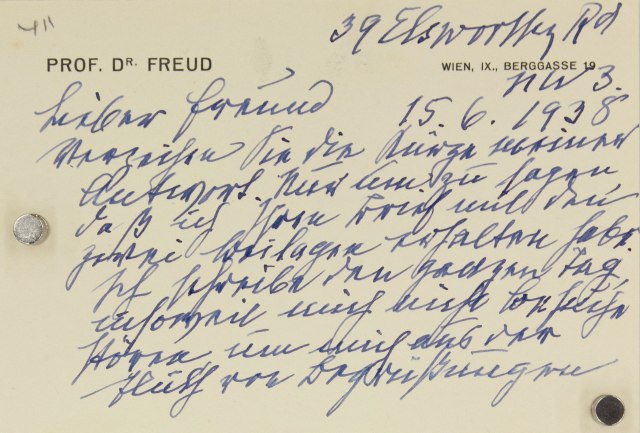 411
39 Elsworthy Rd
PROF. DR. FREUD
WIEN, IX., BERGGASSE 19
NW 3.
Lieber Freund
15. 6. 1938
Verzeihen Sie die Kürze meiner
Antwort. Nur um zu sagen,
daß ich Ihren Brief mit den
zwei Beilagen erhalten habe.
Ich schreibe den ganzen Tag,
insoweil mich nicht Besuche
stören um mich aus der
Fluth von Begrüßungen